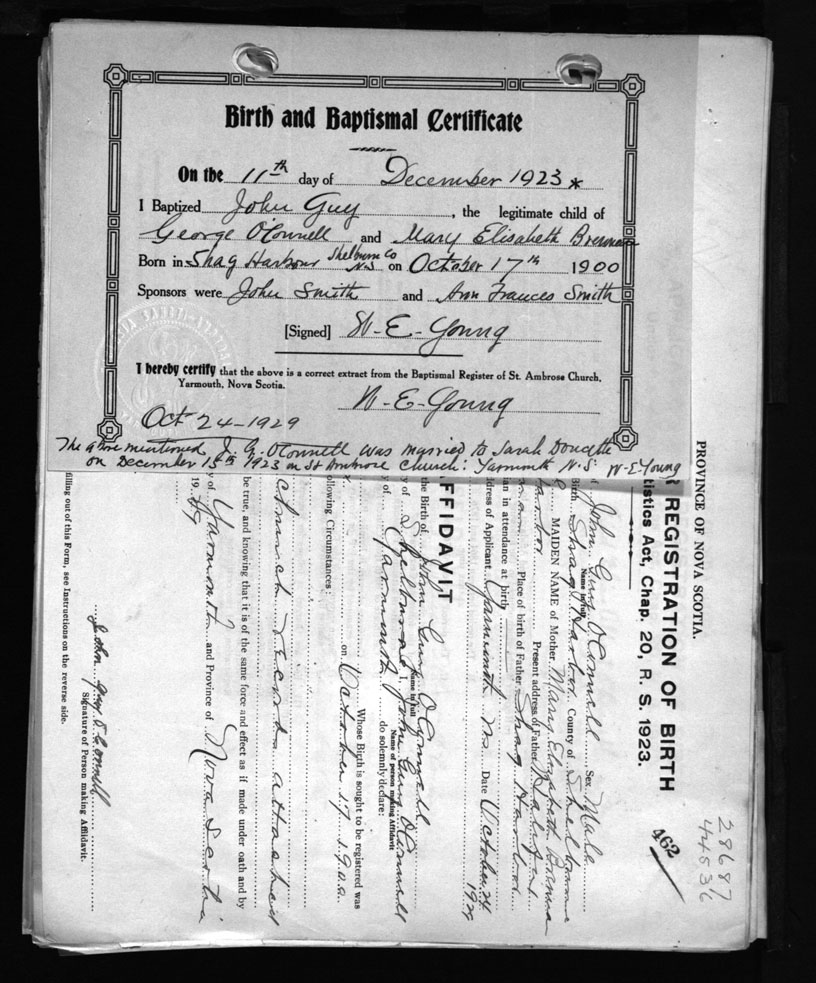 Birth and Baptismal Certificate
On the 11th day of December 1923 *
I Baptized John Guy, the legitimate child of
George O'Connell and Mary Elisabeth Brennan
Born in Shag Harbour Shelburne Co N.S. on October 17th 1900
Sponsors were John Smith and Ann Frances Smith
[Signed] W-E-Young
I hereby certify that the above is a correct extract from the Baptismal Register of St. Ambrose Church,
Yarmouth, Nova Scotia.
W-E-Young
Oct 24-1929
The above mentioned J. G. O'Connell was married to Sarah Doucette
on December 15th 1923 in St Ambrose Church: Yarmouth N.S. W-E Young
28687
44536
PROVINCE OF NOVA SCOTIA.
REGISTRATION OF BIRTH
tistics Act, Chap. 20, R. S. 1923.
462
of John Guy O'Connell Sex Male
Name in full
Birth Shag Harbor County of Shelburne
MAIDEN NAME of Mother Mary Elizabeth
arbor Present address of Father
Place of birth of Father Shag Harbor
an in attendance at birth
ddress of Applicant Yarmouth N.S. Date October 24 1929
FFIDAVIT
the Birth of John Guy O'Connell
Name in full
y of Shelburne I, John Guy O'Connell
Name of person making Affidavit
y of Yarmouth do solemnly declare:
Whose Birth is sought to be registered was
on October 17 1900
ollowing Circumstances:
church records attached
be true, and knowing that it is of the same force and effect as if made under oath and by
y of Yarmouth and Province of Nova Scotia
1929
John Guy O'Connell
Signature of Person making Affidavit.
filling out of this Form, see Instructions on the reverse side.